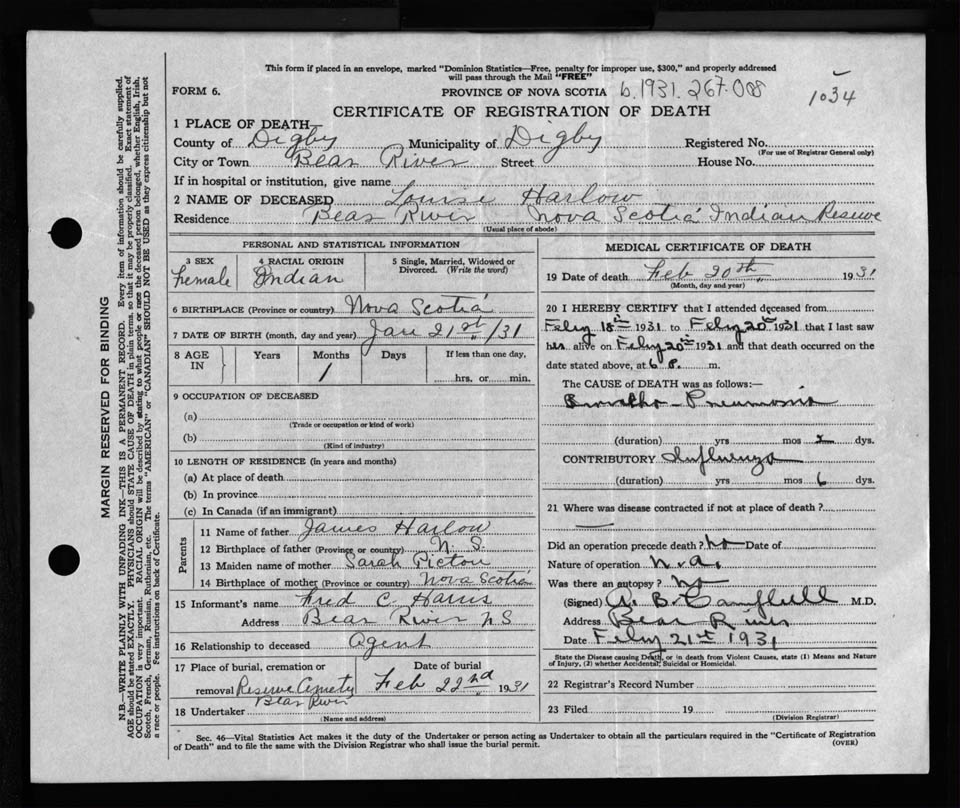 This form if placed in an envelope, marked "Dominion Statistics—Free, penalty for improper use, $300," and properly addressed
will pass through the Mail "FREE"
FORM 6. PROVINCE OF NOVA SCOTIA b.1931.267.008 1034
CERTIFICATE OF REGISTRATION OF DEATH
1 PLACE OF DEATH—
County of Digby Municipality of Digby Registered No.
(For use of Registrar General only)
City or Town Bear River Street House No.
If in hospital or institution, give name
2 NAME OF DECEASED Louise Harlow
Residence Bear River Nova Scotia Indian Reserve
(Usual place of abode)
PERSONAL AND STATISTICAL INFORMATION
3 SEX 4 RACIAL ORIGIN 5 Single, Married, Widowed or
Divorced. (Write the word)
Female Indian
6 BIRTHPLACE (Province or country) Nova Scotia
7 DATE OF BIRTH (month, day and year) Jan 21st/31
8 AGE IN Years Months Days If less than one day,
1 hrs. or min.
9 OCCUPATION OF DECEASED
(a)
(Trade or occupation or kind of work)
(b)
(Kind of industry)
10 LENGTH OF RESIDENCE (in years and months)
(a) At place of death
(b) In province
(c) In Canada (if an immigrant)
Parents
11 Name of father James Harlow
12 Birthplace of father (Province or country) N. S.
13 Maiden name of mother Sarah Picton
14 Birthplace of mother (Province or country) Nova Scotia
15 Informant's name Fred C Harris
Address Bear River NS
16 Relationship to deceased Agent
17 Place of burial, cremation or Date of burial
removal Reserve Cemety Feb 22nd 1931
Bear River
18 Undertaker
(Name and address)
MEDICAL CERTIFICATE OF DEATH
19 Date of death Feb 20th 1931
(Month, day and year)
20 I HEREBY CERTIFY that I attended deceased from
Feby 18th 1931 to Feby 20th 1931 that I last saw
her alive on Feby 20th 1931 and that death occurred on the
date stated above, at 6 P. m.
The CAUSE of DEATH was as follows:—
Broncho-Pneumonia
(duration) yrs mos 2 dys.
CONTRIBUTORY Influenza
(duration) yrs mos 6 dys.
21 Where was disease contracted if not at place of death?
Did an operation precede death? No Date of
Nature of operation n.a.
Was there an autopsy? No
(Signed) A. B. Campbell M.D.
Address Bear River
Date Feby 21st 1931
State the Disease causing Death, or in death from Violent Causes, state (1) Means and Nature
of Injury, (2) whether Accidental, Suicidal or Homicidal.
22 Registrar's Record Number
23 Filed 19
(Division Registrar)
Sec. 46—Vital Statistics Act makes it the duty of the Undertaker or person acting as Undertaker to obtain all the particulars required in the "Certificate of Registration
of Death" and to file the same with the Division Registrar who shall issue the burial permit. (OVER)
MARGIN RESERVED FOR BINDING
N.B.—WRITE PLAINLY WITH UNFADING INK—THIS IS A PERMANENT RECORD. Every item of information should be carefully supplied.
AGE should be stated EXACTLY. PHYSICIANS should STATE CAUSE OF DEATH in plain terms, so that it may be properly classified. Exact statement of
OCCUPATION is very important. RACIAL ORIGIN will be described by stating to what people or race the deceased person belonged, whether English, Irish,
Scotch, French, German, Russian, Ruthenian, etc. The terms "AMERICAN" or "CANADIAN" SHOULD NOT BE USED as they express citizenship but not
a race or people. Fee instructions on back of Certificate.